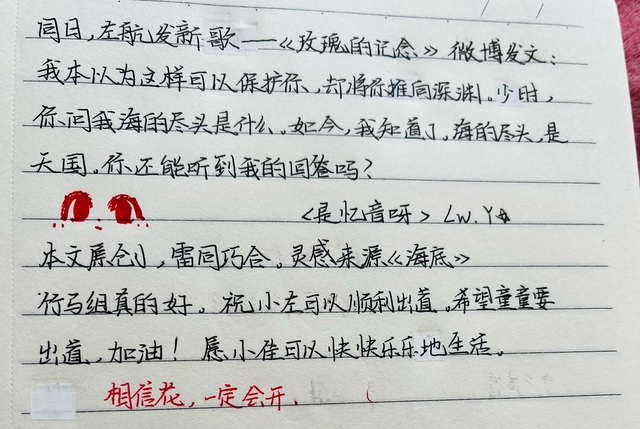 同日，左航发新歌——《玫瑰的记念》微博发文：
我本以为这样可以保护你、却将你推向深渊。少时，
你问我海的尽头是什么。如今，我知道了。海的尽头，是
天国。你还能听到我的回答吗？
〈是忆音呀〉Lw.Y
本文原创，雷同巧合。灵感来源《海底》
行马组真的好。祝小左可以顺利出道。希望童童要
出道，加油！愿小佳可以快快乐乐地生活。
相信花，一定会开．